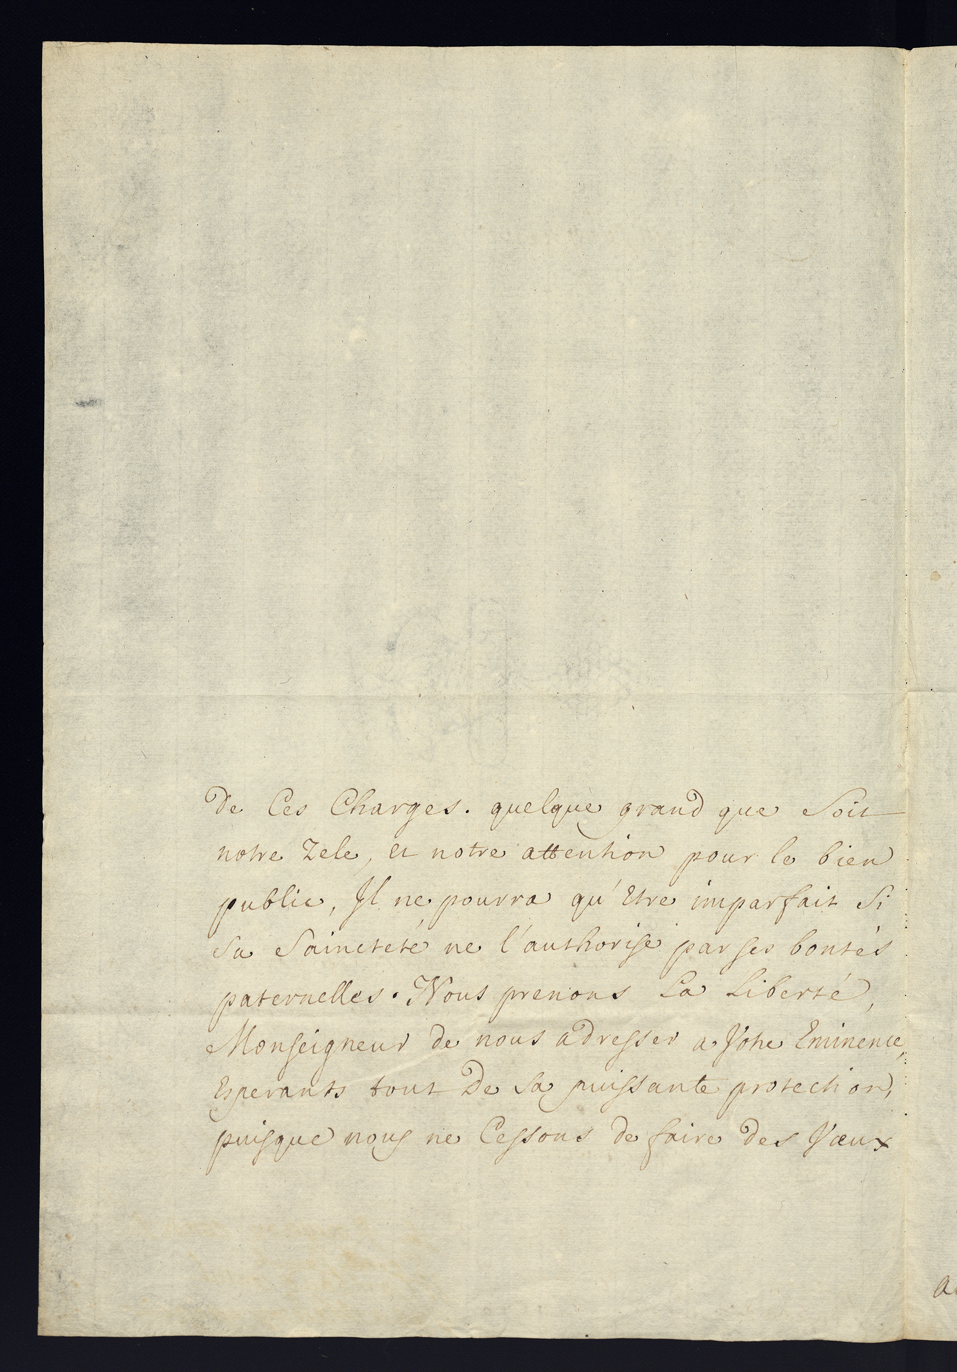 De Ces Charges. quelque grand que Soit
notre Zele, et notre attention pour le bien
public, Jl ne pourra qu'Etre imparfait Si
Sa Saincteté ne l'authorise par ses bontés
paternelles. Nous prenons La Liberté,
Monseigneur de nous adresser a Votre Eminence,
Esperants tout De Sa puissante protection,
puisque nous ne Cessons de faire des Vœux